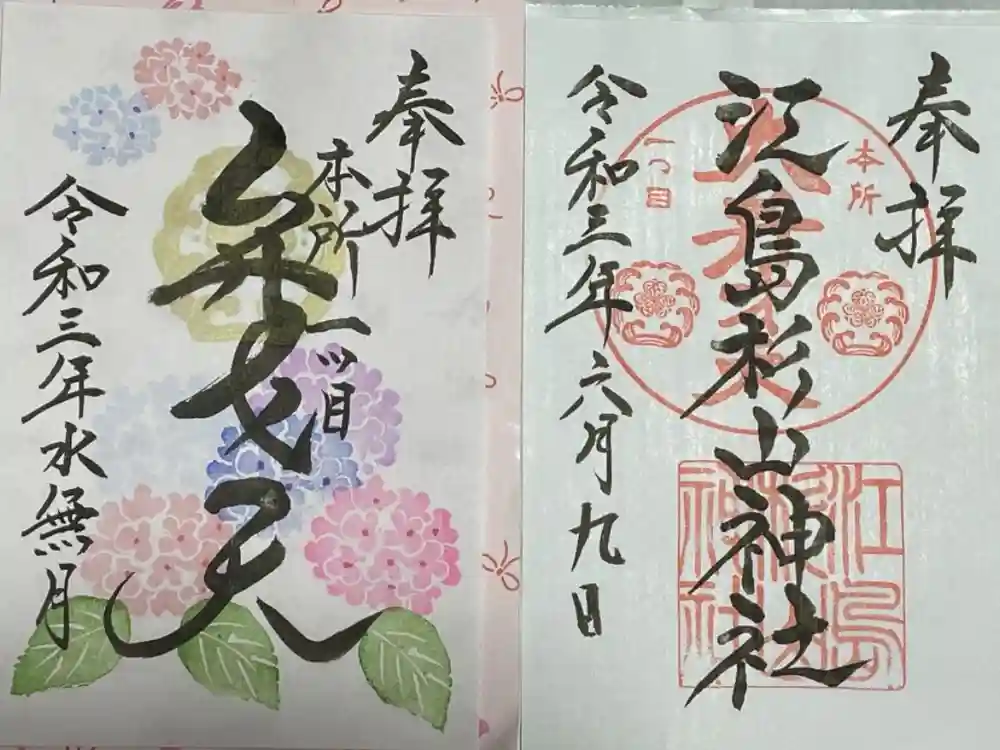 奉拝
本所一ッ目
弁才天
令和三年水無月
奉拝
江島杉山神社
令和三年六月九日
本所
一つ目
江島
杉山
神社